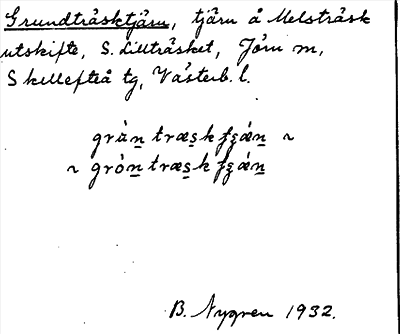 Grundträsktjärn, tjärn å Melsträsk
utskifte, S. Lillträsket, Jörn sn,
Skellefteå tg, Västerb. l.
gràn træsk
~ grȯn træsk
B. Nygren 1932.